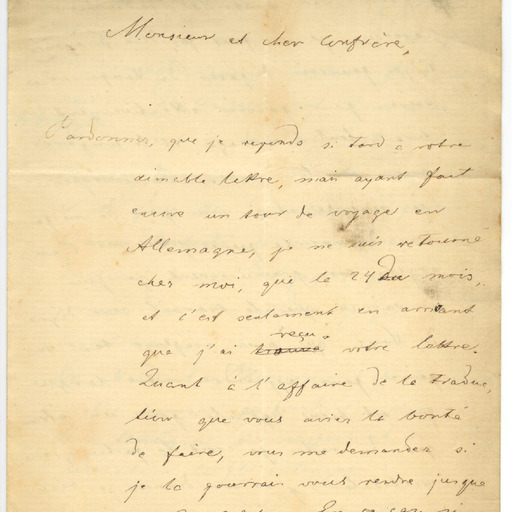 Monsieur et cher Confrère,
Pardonnez, que je reponds si tard a votre
aimable lettre, mais ayant fait
encore un tour de voyage en
Allemagne, je ne suis retourné
chez moi, que le 24 du mois,
et c'est seulement en arrivant
reçu
que j'ai trouvé votre lettre.
Quant à l'affaire de la traduc,
tion que vous aviez la bonté
de faire, vous me demandez si
je la pourrais vous rendre jusque